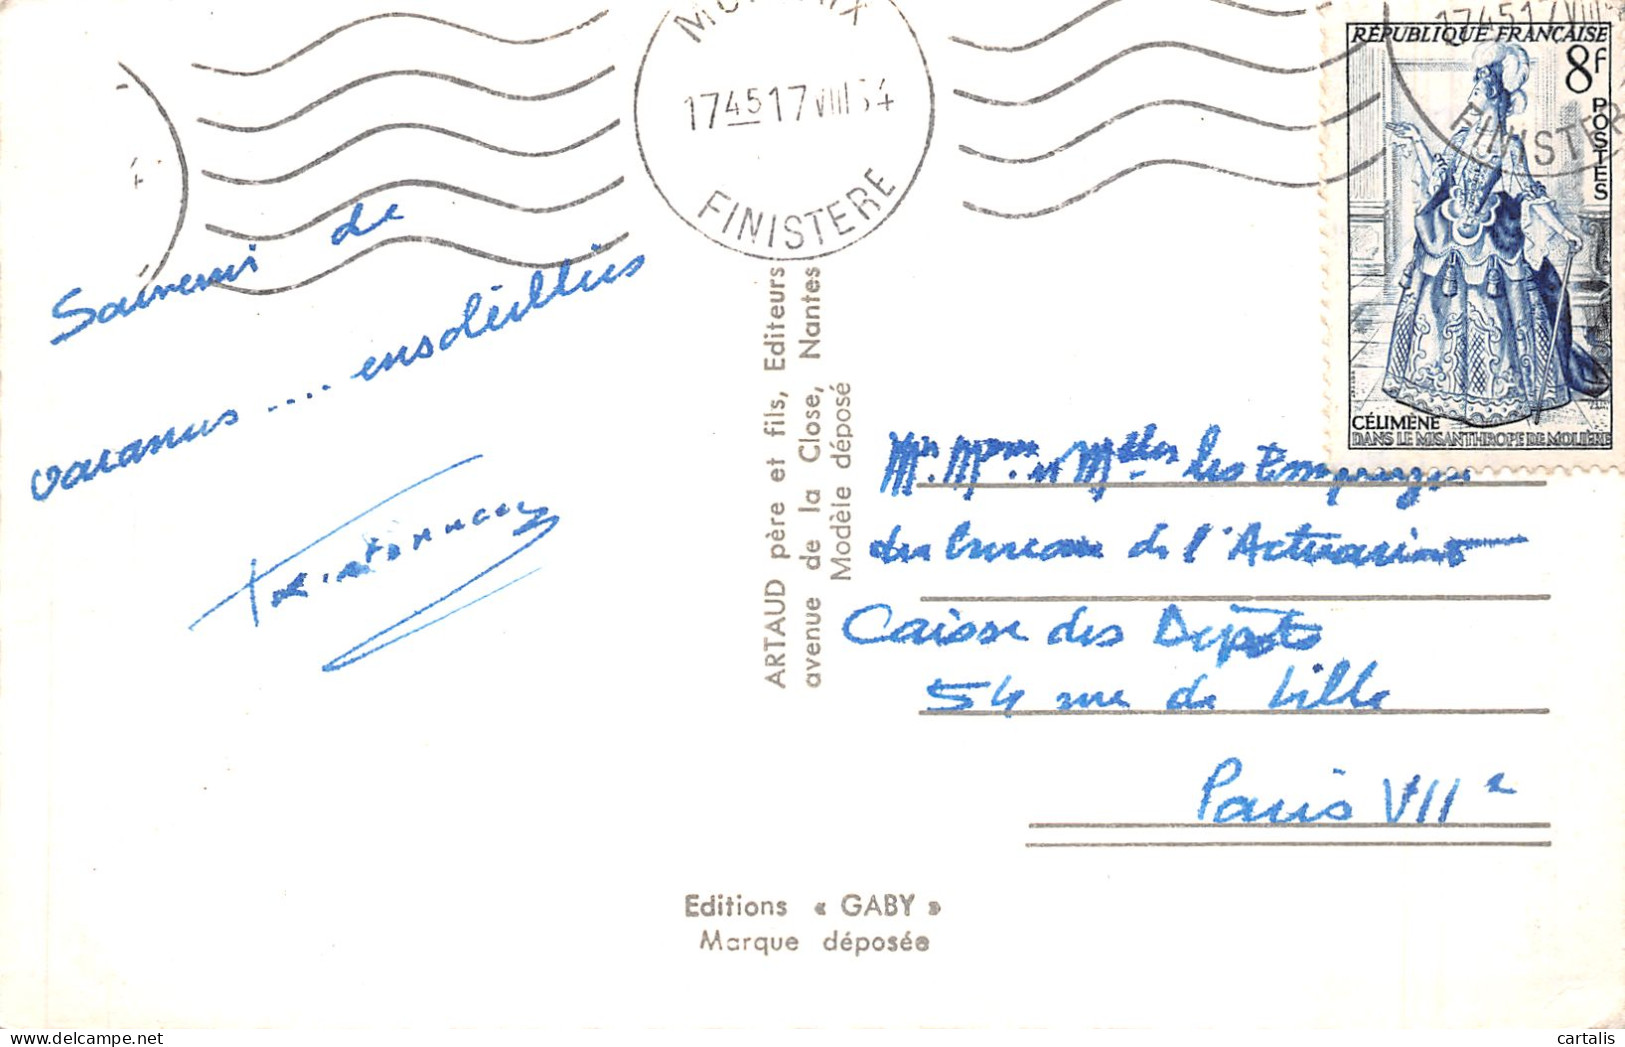 MORLAIX
1745 17 VIII 54
FINISTERE
1745 17 VIII
FINISTERE
RÉPUBLIQUE FRANÇAISE
8F
POSTES
CÉLIMÈNE
DANS LE MISANTHROPE DE MOLIÈRE
Souvenir de
vacances .... ensoleillées
ARTAUD père et fils, Editeurs
avenue de la Close, Nantes
Modèle déposé
Mrs. Mmes. et Melles les
du bureau de l'Actuariat
Caisse des Dépots
54 rue de Lille
Paris VIIe
Editions « GABY »
Marque déposée
cartalis